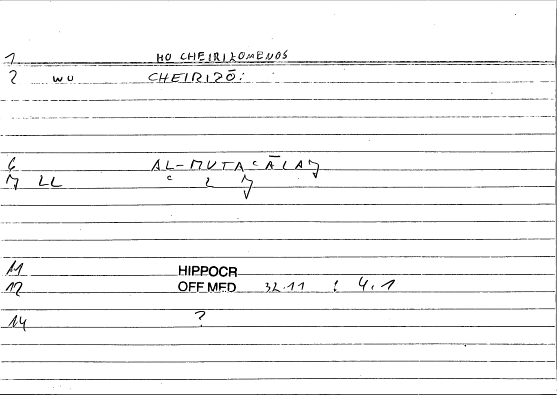 1 HO CHEIRIZOMENOS
2 WO CHEIRIZŌ:
6
7 LL
11 HIPPOCR
12 OFF MED 32.11 : 4.1
14 ?